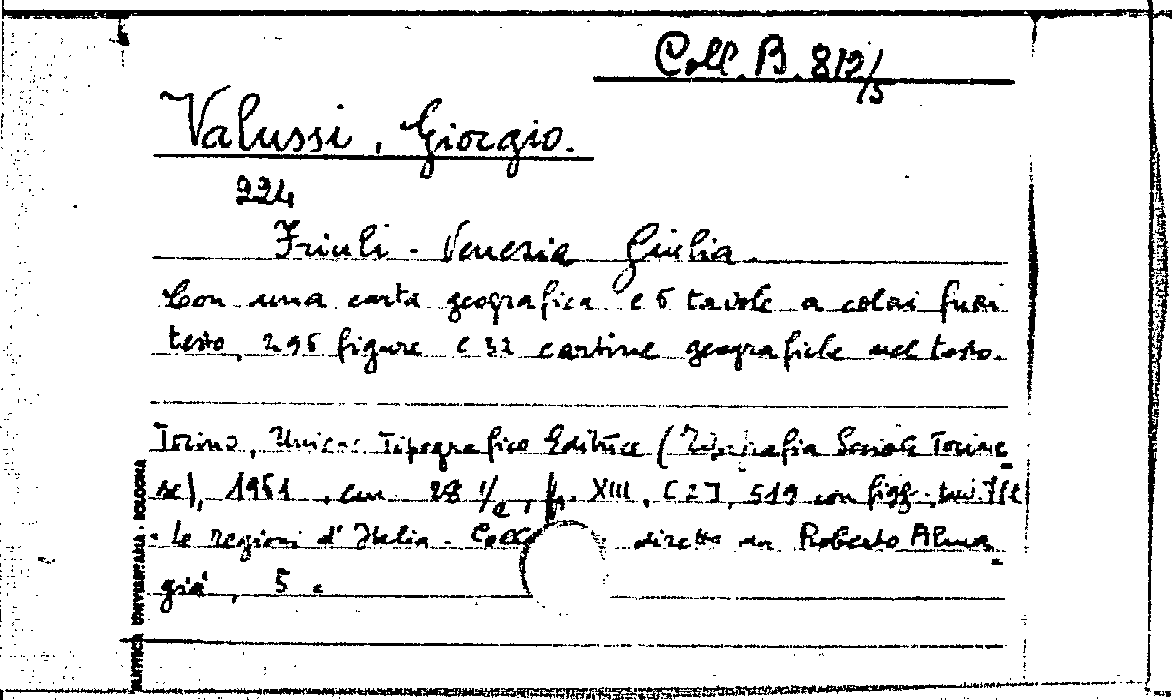 Coll. B. 812/5
Valussi, Giorgio.
224
Friuli - Venezia Giulia.
Con una carta geografica e 6 tavole a colori fuori
testo, 295 figure e 32 cartine geografiche nel testo.
Torino, Unione Tipografico Editrice (Tipografia Sociale Torine
se), 1961, cm 28 1/2, p. XIII, [2], 519 con figg.
Le regioni d'Italia - diretta da Roberto Alma
già, 5.
UNIVERSITARIA . BOLOGNA